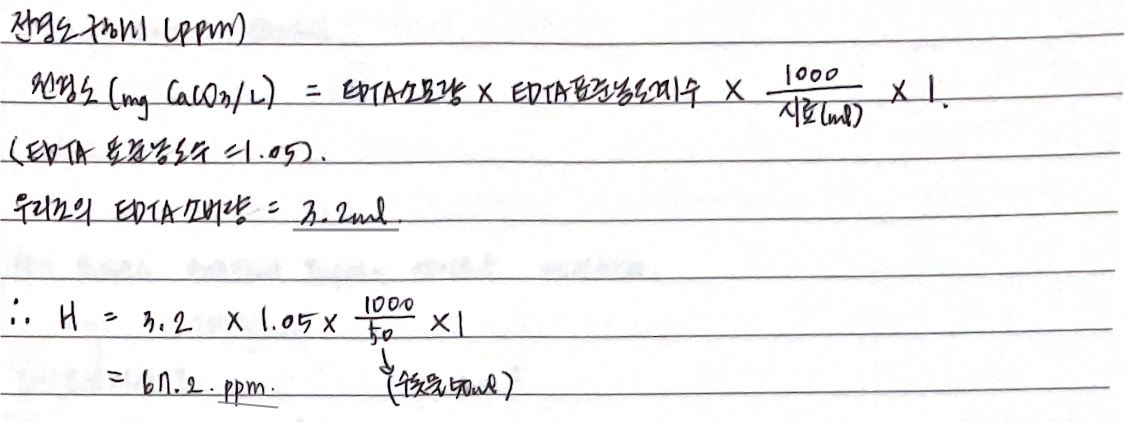 전경도 구하기 (ppm)
전경도 (mg CaCO3/L) = EDTA소모량 × EDTA표준농도계수 × 1000/시료(ml) × 1.
(EDTA 표준농도수 =1.05).
우리조의 EDTA소비량 = 3.2ml.
∴ H = 3.2 × 1.05 × 1000/50 × 1
= 67.2. ppm. (수돗물 50ml)